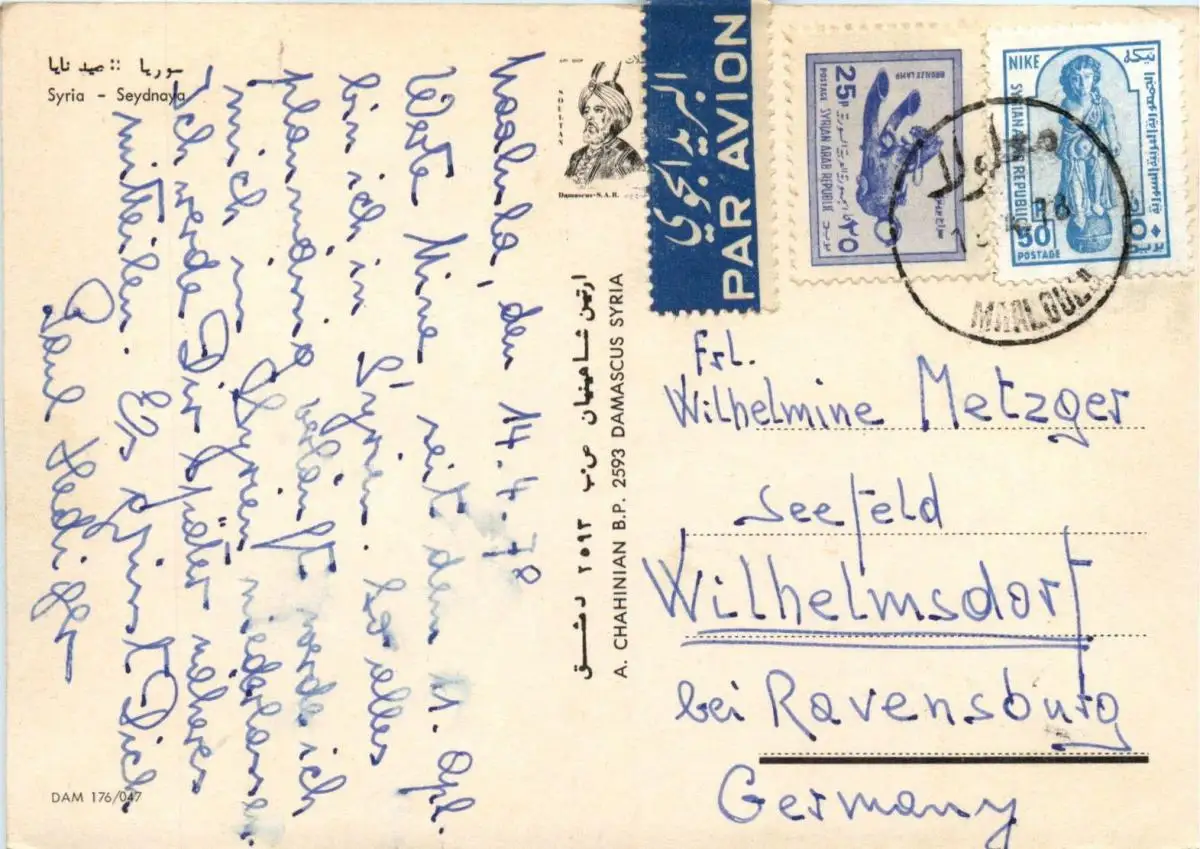 سوريا :: صيد نايا
Syria - Seydnaya
Maalula, den 14.4.78
Werte Mine, seit dem 11. Apl.
bin ich in Syrien. So alles
planmäßig verläuft werde ich
mich in Syrien niederlassen.
Ich werde Dir später näheres
mitteilen. Es grüßt Dich
Paul Hediger
DAM 176/047
SULTAN
Damascus-S.A.R.
ارتين شاهينيان ص.ب ٢٥٩٣ دمشق
A. CHAHINIAN B.P. 2593 DAMASCUS SYRIA
البريد الجوي
PAR AVION
BRONZE LAMP
25P
POSTAGE SYRIAN ARAB REPUBLIK
٢٥
بريد
NIKE
SYRIAN ARAB REPUBLIC
50
POSTAGE
معلولا
78
MAALOULA
Frl.
Wilhelmine Metzger
Seefeld
Wilhelmsdorf
bei Ravensburg
Germany